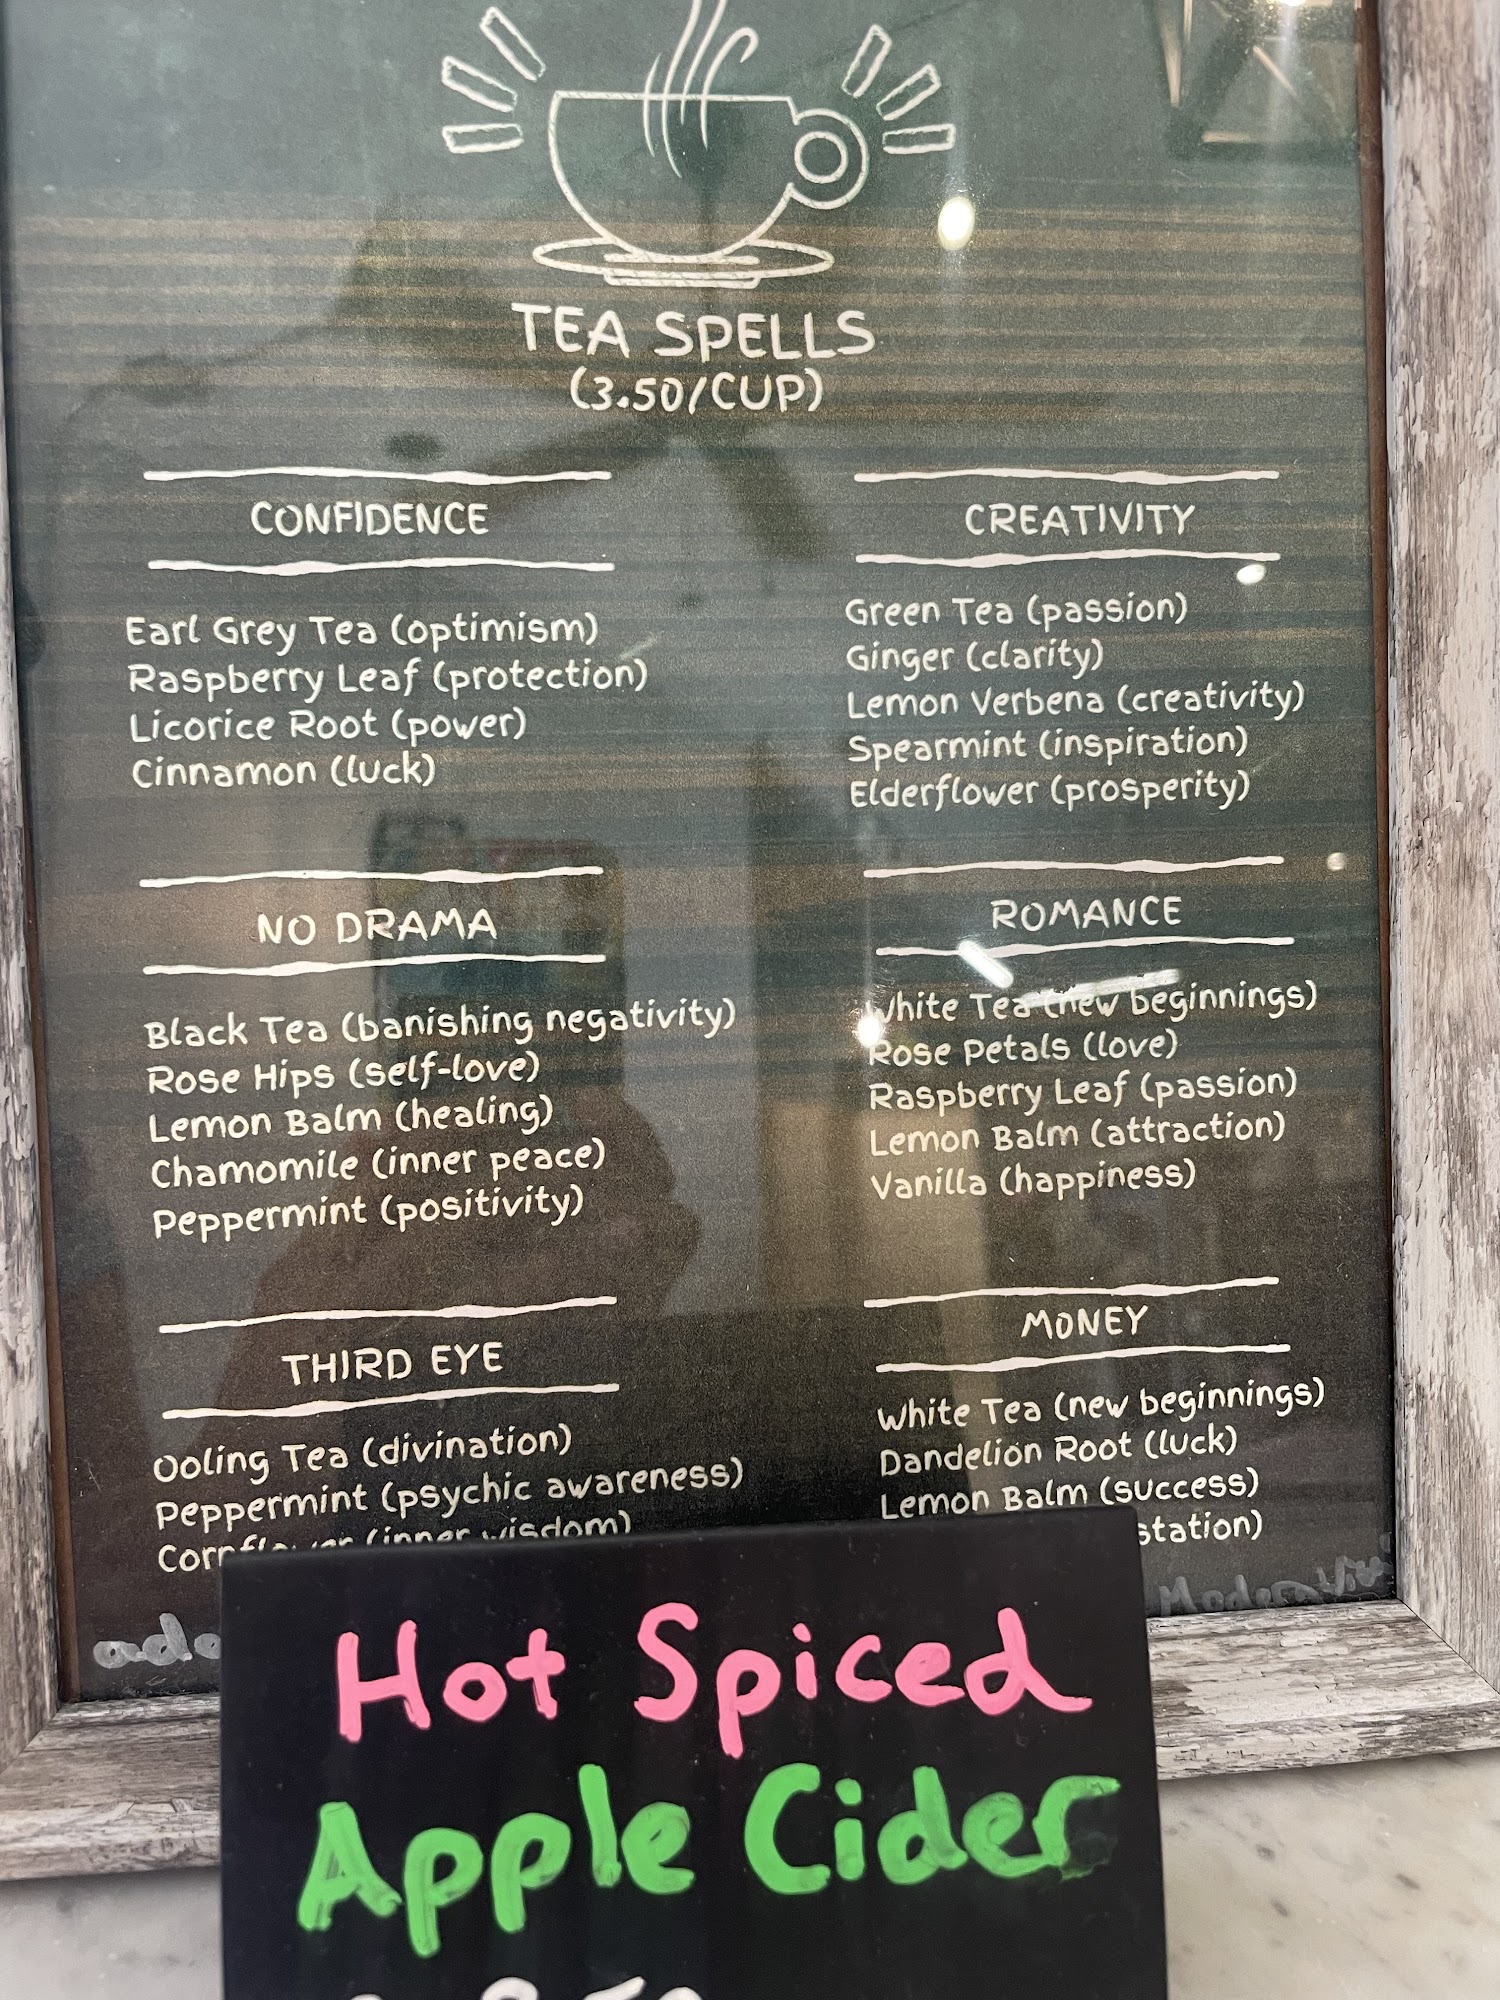 TEA SPELLS
(3.50/CUP)
CONFIDENCE
Earl Grey Tea (optimism)
Raspberry Leaf (protection)
Licorice Root (power)
Cinnamon (luck)
CREATIVITY
Green Tea (passion)
Ginger (clarity)
Lemon Verbena (creativity)
Spearmint (inspiration)
Elderflower (prosperity)
NO DRAMA
Black Tea (banishing negativity)
Rose Hips (self-love)
Lemon Balm (healing)
Chamomile (inner peace)
Peppermint (positivity)
ROMANCE
White Tea (new beginnings)
Rose Petals (love)
Raspberry Leaf (passion)
Lemon Balm (attraction)
Vanilla (happiness)
THIRD EYE
Ooling Tea (divination)
Peppermint (psychic awareness)
Cornflower (inner wisdom)
MONEY
White Tea (new beginnings)
Dandelion Root (luck)
Lemon Balm (success)
Hot Spiced
Apple Cider